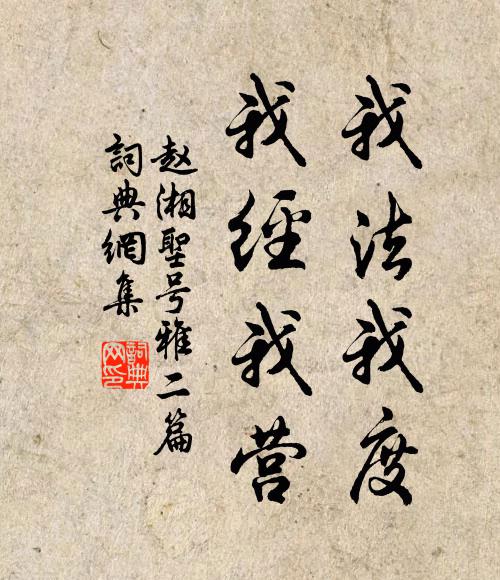 我法我度
我經我营
赵湘聖号雅二篇
詞典網集
詞典网印